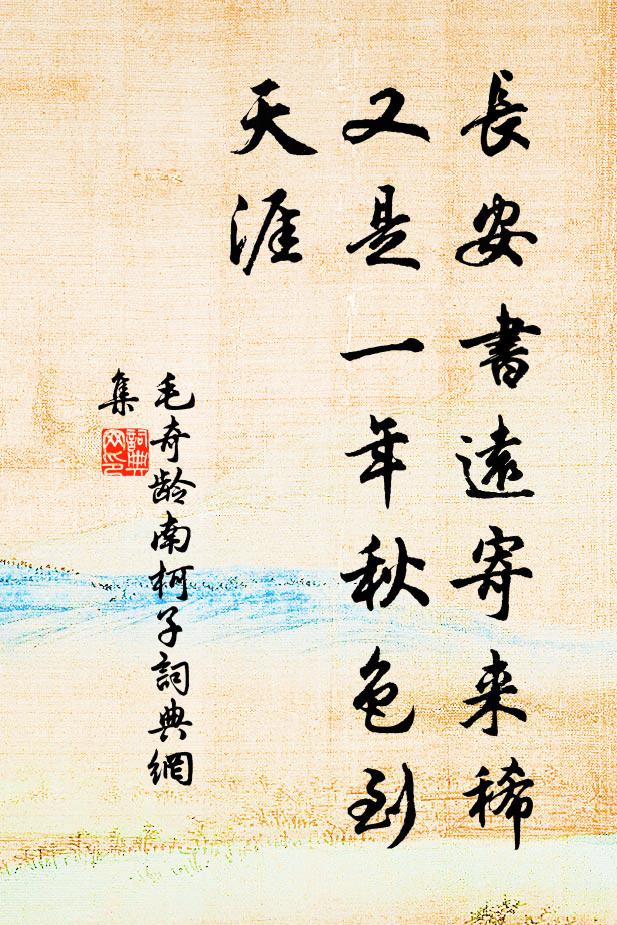 長安書遠寄来稀
又是一年秋色到
天涯
毛奇龄南柯子詞典網
集
詞典
网印